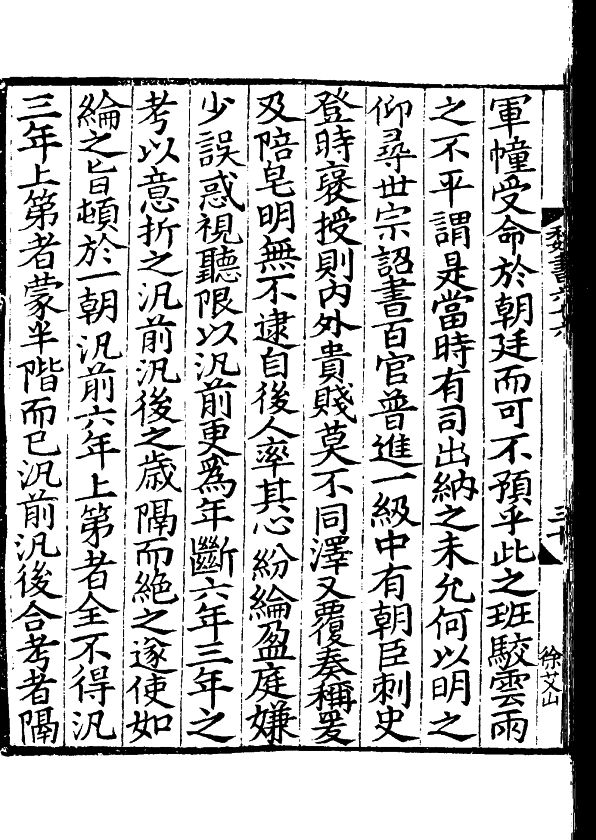 魏書六十六
三十
徐艾山
軍幢受命於朝廷而可不預乎此之班駮雲雨
之不平謂是當時有司出納之未允何以明之
仰尋世宗詔書百官普進一級中有朝臣刺史
登時襃授則內外貴賤莫不同澤又覆奏稱爰
及陪皂明無不逮自後人率其心紛綸盈庭嫌
少誤惑視聽限以汎前更爲年斷六年三年之
考以意折之汎前汎後之歲隔而絶之遂使如
綸之旨頓於一朝汎前六年上第者全不得汎
三年上第者蒙半階而已汎前汎後合考者隔